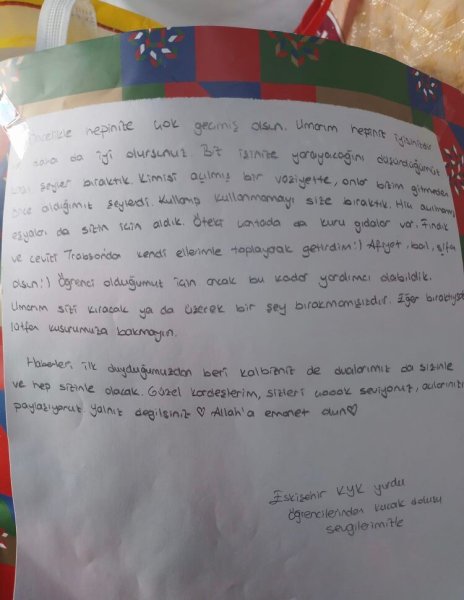 Öncelikle hepinize çok geçmiş olsun. Umarım hepiniz iyisinizdir
daha da iyi olursunuz. Biz işinize yarayacağını düşündüğümüz
bazı şeyler bıraktık. Kimisi açılmış bir vaziyette, onlar bizim gitmeden
önce aldığımız şeylerdi. Kullanıp kullanmamayı size bıraktık. Hiç açılmamış
eşyaları da sizin için aldık. Öteki çantada da kuru gıdalar var. Fındık
ve cevizi Trabzondan kendi ellerimle toplayarak getirdim:) Afiyet, bal, şifa
olsun:) Öğrenci olduğumuz için ancak bu kadar yardımcı olabildik.
Umarım sizi kıracak ya da üzecek bir şey bırakmamışızdır. Eğer bıraktıysak
lütfen kusurumuza bakmayın.
Haberleri ilk duyduğumuzdan beri kalbimiz de dualarımız da sizinle
ve hep sizinle olacak. Güzel kardeşlerim, sizleri çoook seviyoruz, acılarınızı
paylaşıyoruz. Yalnız değilsiniz ♡ Allah'a emanet olun♡
Eskişehir KYK yurdu
öğrencilerinden kucak dolusu
sevgilerimizle